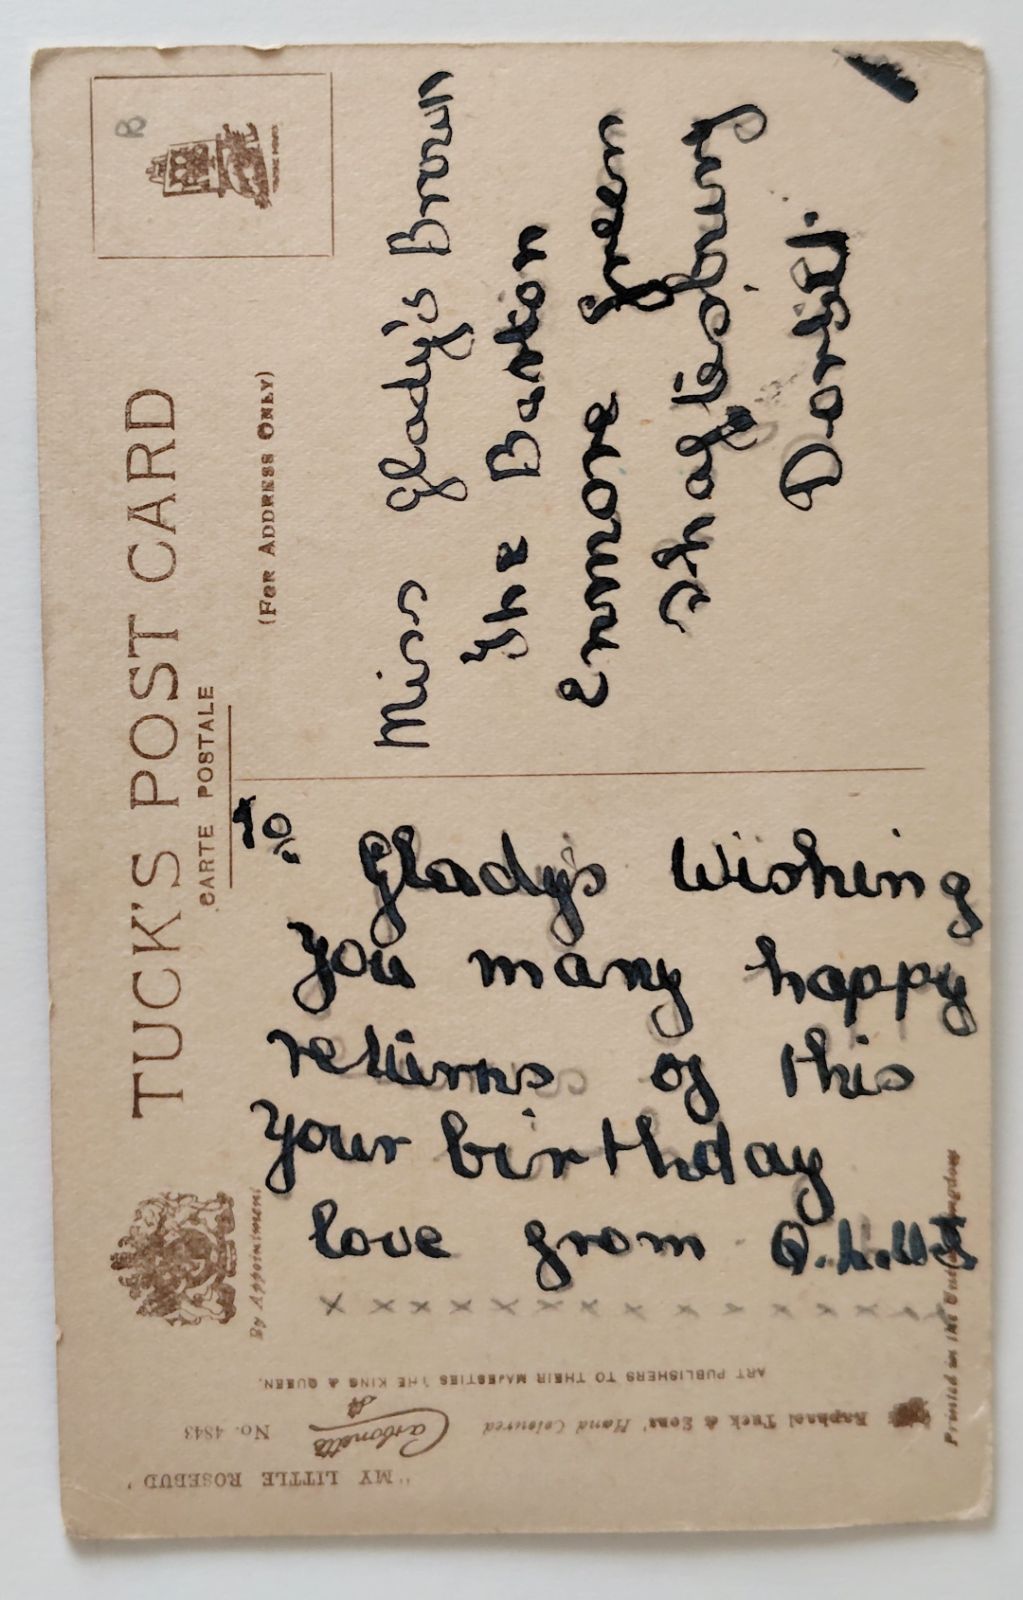 TUCK'S POST CARD
CARTE POSTALE
(FOR ADDRESS ONLY)
By Appointment
To
Glady's Wishing
you many happy
returns of this
your birthday
love from
x x x x x x x x x x x x x x
Miss Glady's Brown
The Barton
Enmore Green
Shaftesbury
Dorset.
"MY LITTLE ROSEBUD"
Carbonette
No. 4843
Raphael Tuck & Sons' Hand Coloured
ART PUBLISHERS TO THEIR MAJESTIES THE KING & QUEEN.
Printed in the United Kingdom
B